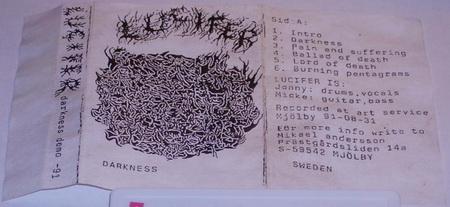 LUCIFER
darkness demo -91
LUCIFER
DARKNESS
Sid A:
1. Intro
2. Darkness
3. Pain and suffering
4. Ballad of death
5. Lord of death
6. Burning pentagrams
LUCIFER IS:
Jonny: drums,vocals
Mickel guitar,bass
Recorded at art service
Mjölby 91-08-31
For more info write to
Mikael andersson
Prästgårdsliden 14a
S-59542 MJÖLBY
SWEDEN